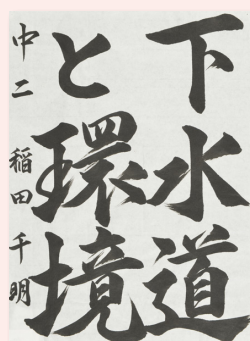 下水道
と環境
中二 稲田千明